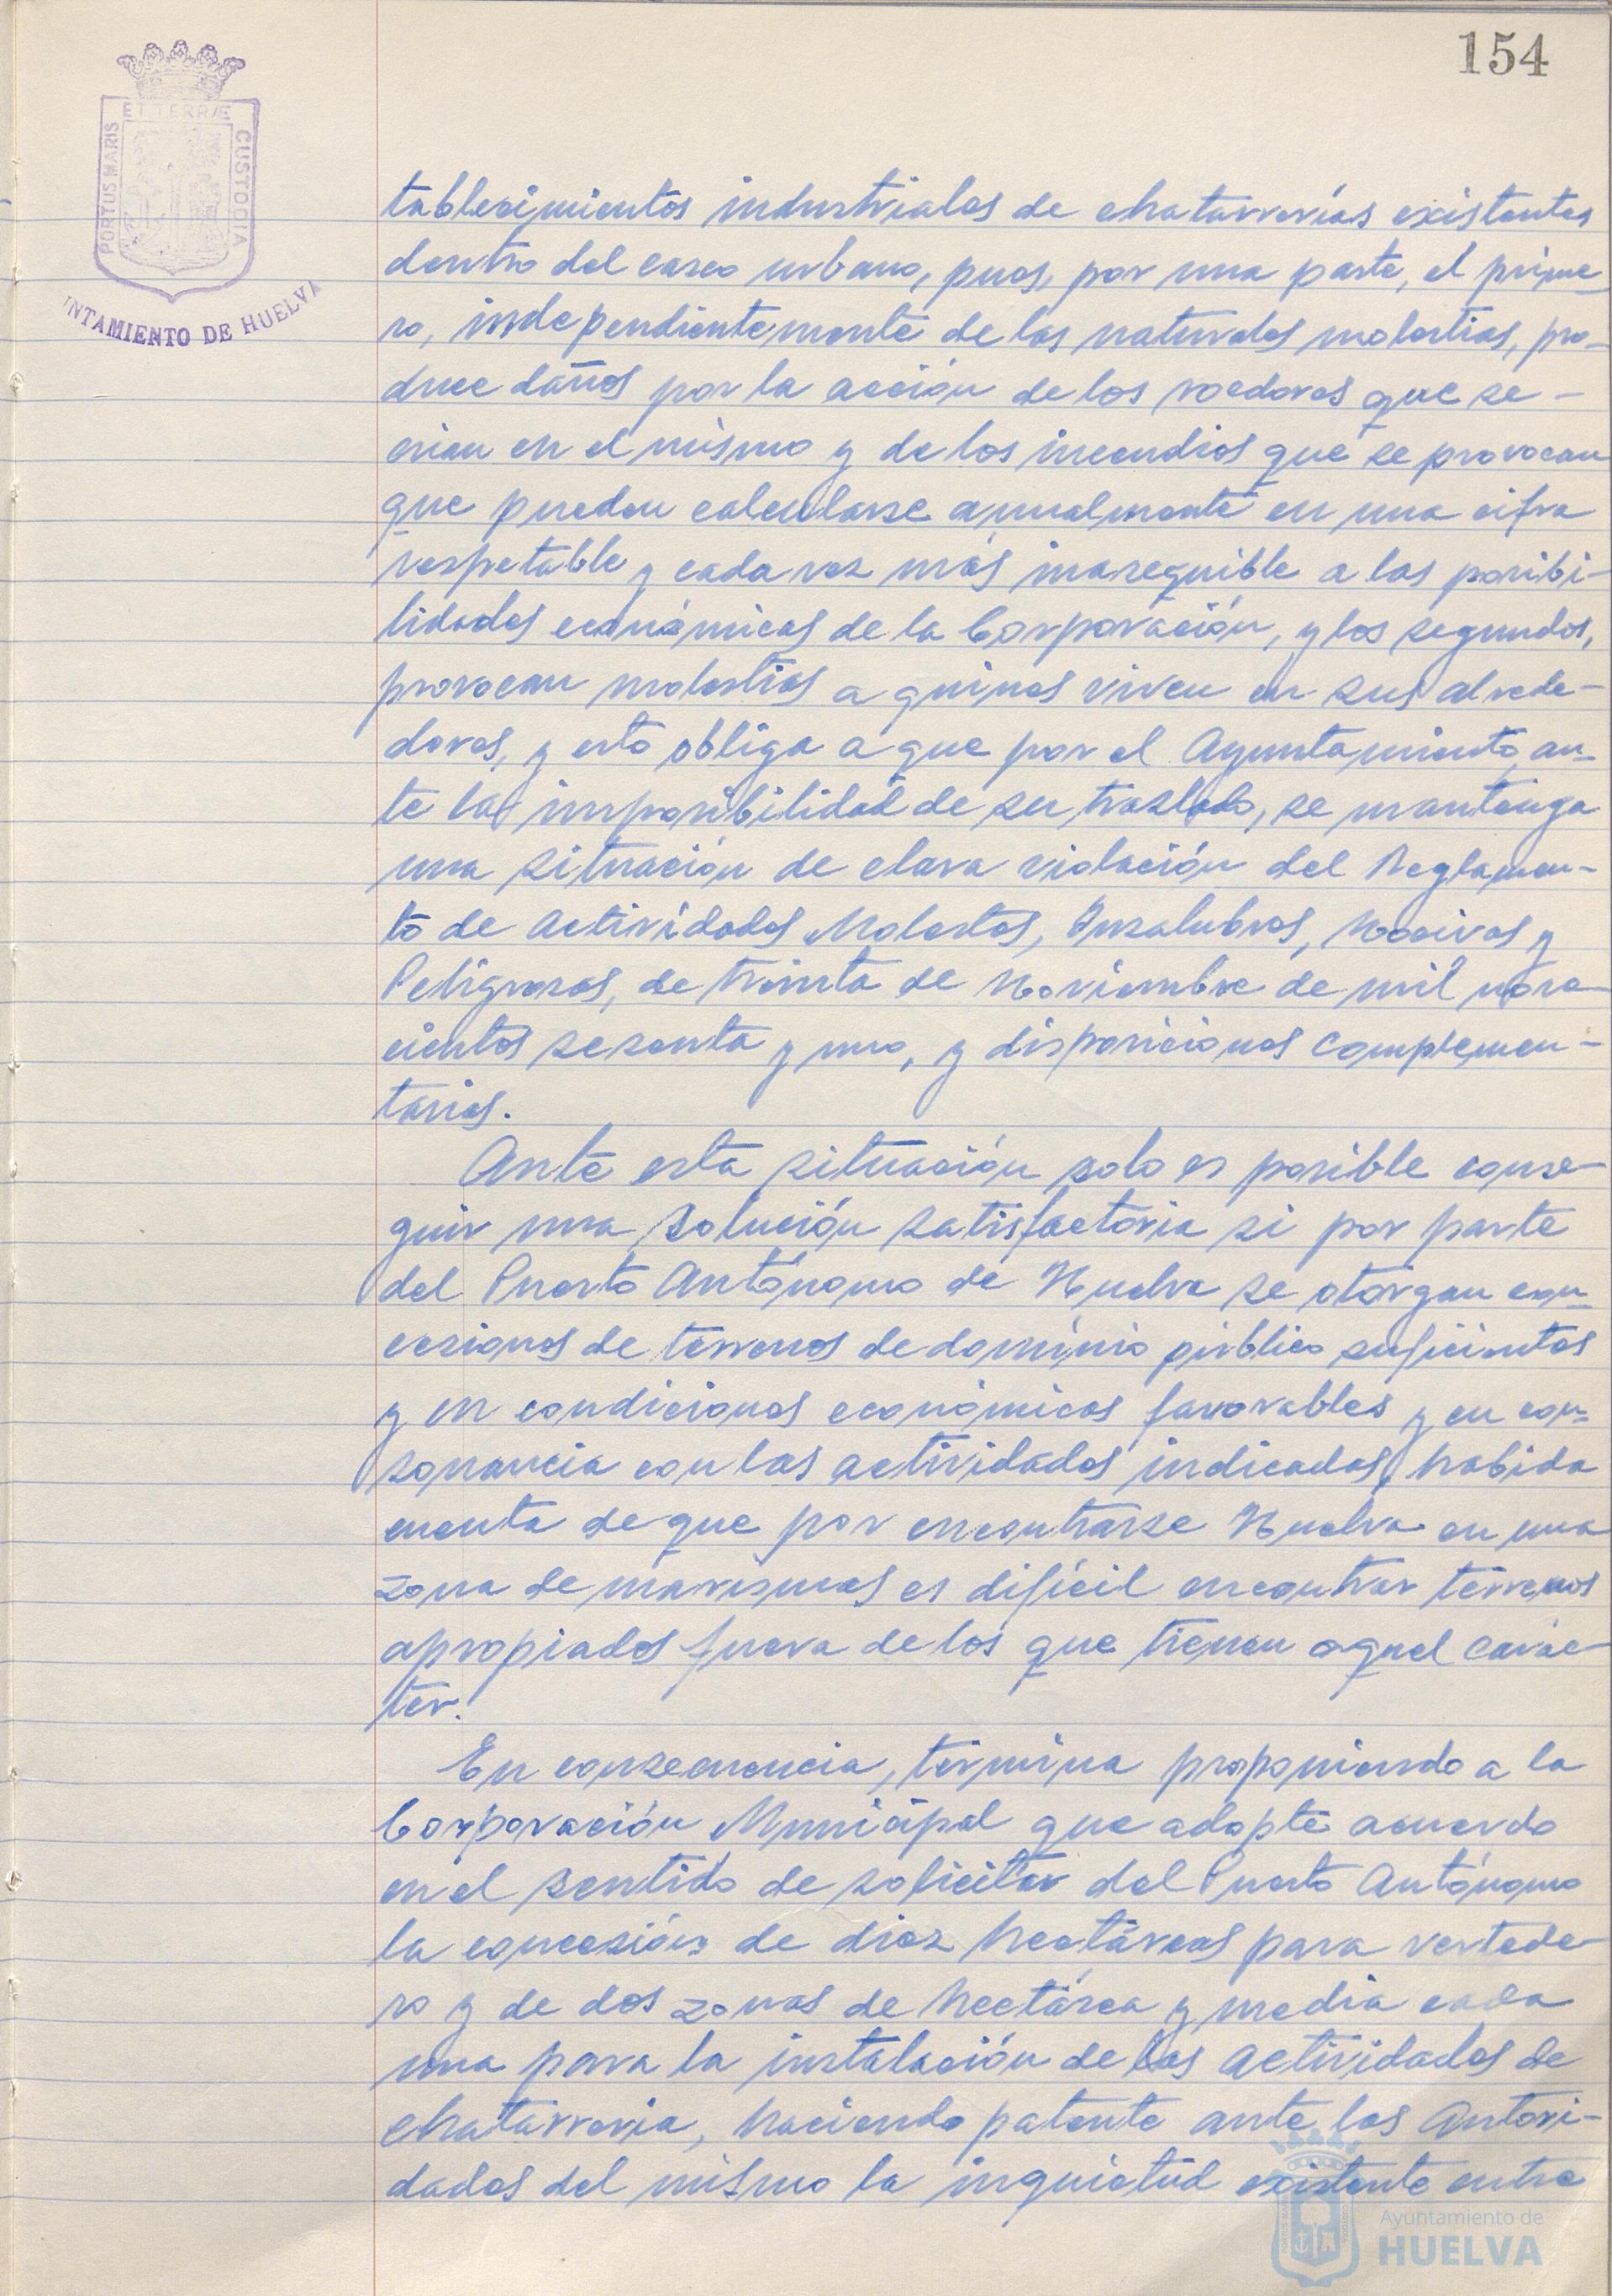 154
ET TERRÆ
PORTUS MARIS
CUSTODIA
NTAMIENTO DE HUELVA
tablecimientos industriales de chatarrerías existentes
dentro del casco urbano, pues, por una parte, el prime-
ro, independientemente de las naturales molestias, pro-
duce daños por la acción de los roedores que se -
crian en el mismo y de los incendios que se provocan
que pueden calcularse anualmente en una cifra
respetable y cada vez más inasequible a las posibi-
lidades económicas de la Corporación, y los segundos,
provocan molestias a quines viven en sus alrede-
dores, y esto obliga a que por el Ayuntamiento, an-
te la imposibilidad de su traslado, se mantenga
una situación de clara violación del Reglamen-
to de Actividades Molestas, Insalubres, Nocivas y
Peligrosas, de treinta de Noviembre de mil nove-
cientos sesenta y uno, y disposiciones complemen-
tarias.
Ante esta situación solo es posible conse-
guir una solución satisfactoria si por parte
del Puerto Autónomo de Huelva se otorgan con-
cesiones de terrenos de dominio público suficientes
y en condiciones económicas favorables y en con-
sonancia con las actividades indicadas, habida
cuenta de que por encontrarse Huelva en una
zona de marismas es difícil encontrar terrenos
apropiados fuera de los que tienen aquel carác-
ter.
En consecuencia, termina proponiendo a la
Corporación Municipal que adopte acuerdo
en el sentido de solicitar del Puerto Autónomo
la concesión de diez hectáreas para vertede-
ro y de dos zonas de hectárea y media cada
una para la instalación de las actividades de
chatarreria, haciendo patente ante las Autori-
dades del mismo la inquietud existente entre
Ayuntamiento de
HUELVA